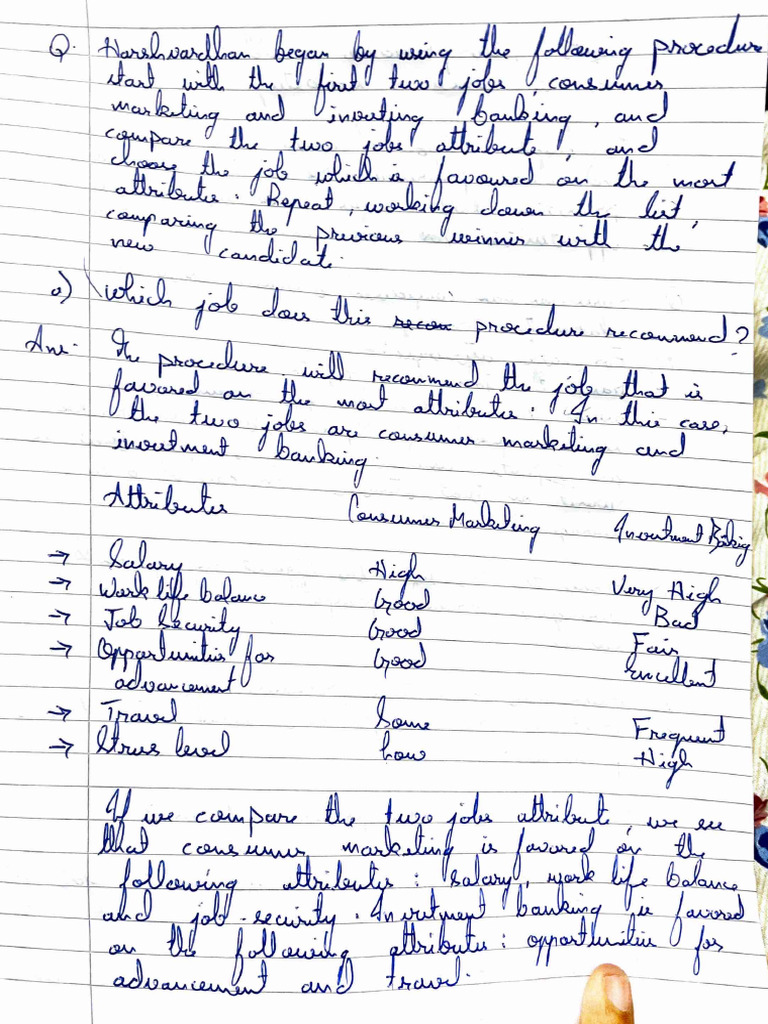 Q. Harshvardhan began by using the following procedure
start with the first two jobs, consumer
marketing and investing banking, and
compare the two jobs attribute, and
choose the job which is favoured on the most
attributes. Repeat, working down the list,
comparing the previous winner with the
new candidate.
a) Which job does this procedure recommend?
Ans. The procedure will recommend the job that is
favored on the most attributes. In this case,
the two jobs are consumer marketing and
investment banking.
Attributes Consumer Marketing Investment Banking
→ Salary High Very High
→ Work life balance Good Bad
→ Job Security Good Fair
→ Opportunities for Good Excellent
advancement
→ Travel Some Frequent
→ Stress level Low High
If we compare the two jobs attribute, we see
that consumer marketing is favored on the
following attributes: salary, work life balance
and job-security. Investment banking is favored
on the following attributes: opportunities for
advancement and travel.